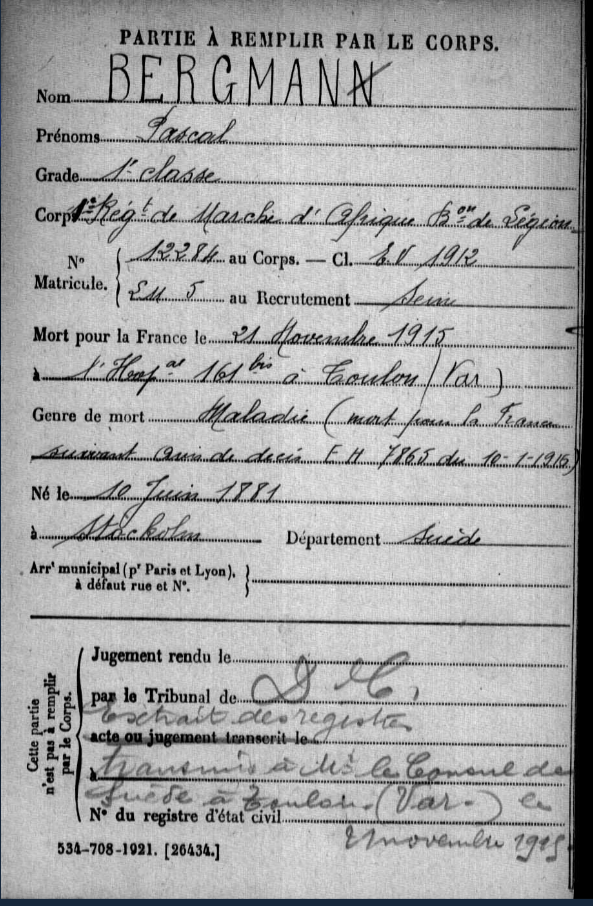 PARTIE À REMPLIR PAR LE CORPS.
Nom BERGMANN
Prénoms Pascal
Grade 1e classe
Corps 1e Régt de Marche d'Afrique Bon de Légion
No Matricule. { 12284 au Corps. — Cl. EV 1912
EM 5 au Recrutement Seine
Mort pour la France le 21 Novembre 1915
à l'Hopal 161 bis à Toulon (Var)
Genre de mort Maladie (mort pour la France
suivant avis de décès F H 7865 du 10-1-1916)
Né le 10 Juin 1881
à Stockolm Département Suède
Arrt municipal (pr Paris et Lyon), }
à défaut rue et No.
Cette partie n'est pas à remplir par le Corps.
Jugement rendu le
par le Tribunal de D C,
Extrait des registres
acte ou jugement transcrit le
à transmis à Mr le Consul de
Suède à Toulon (Var.) le
No du registre d'état civil
novembre 1915
534-708-1921. [26434.]